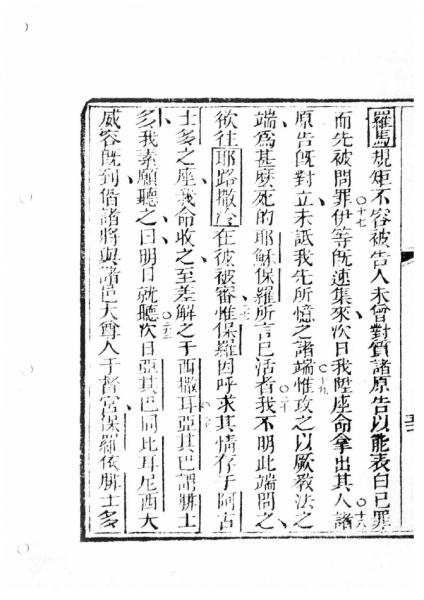 羅馬規矩不容被告人未曾對質諸原告以能表白己罪
而先被問罪伊等旣速集來次日我陞座命拿出其人諸
原告旣對立未詆我先所憶之諸端惟攻之以厥敎法之
端爲甚麼死的耶穌保羅所言已活者我不明此端問之
欲往耶路撒冷在彼被審惟保羅因呼求其情存于阿古
士多之座我命收之至差解之于西撒耳亞其巴謂腓士
多我素願聽之曰明日就聽次日亞其巴同比耳尼西大
威容旣到偕諸將與諸邑大尊人于督官保羅依腓士多